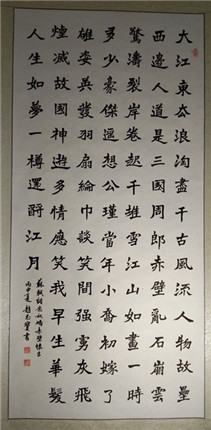 大江東去浪淘盡千古風流人物故壘
西邊人道是三國周郎赤壁亂石崩雲
驚濤裂岸卷起千堆雪江山如畫一時
多少豪傑遙想公瑾當年小喬初嫁了
雄姿英發羽扇綸巾談笑間強虜灰飛
煙滅故國神遊多情應笑我早生華髮
人生如夢一樽還酹江月
蘇軾詞念奴嬌赤壁懷古
丙申夏書